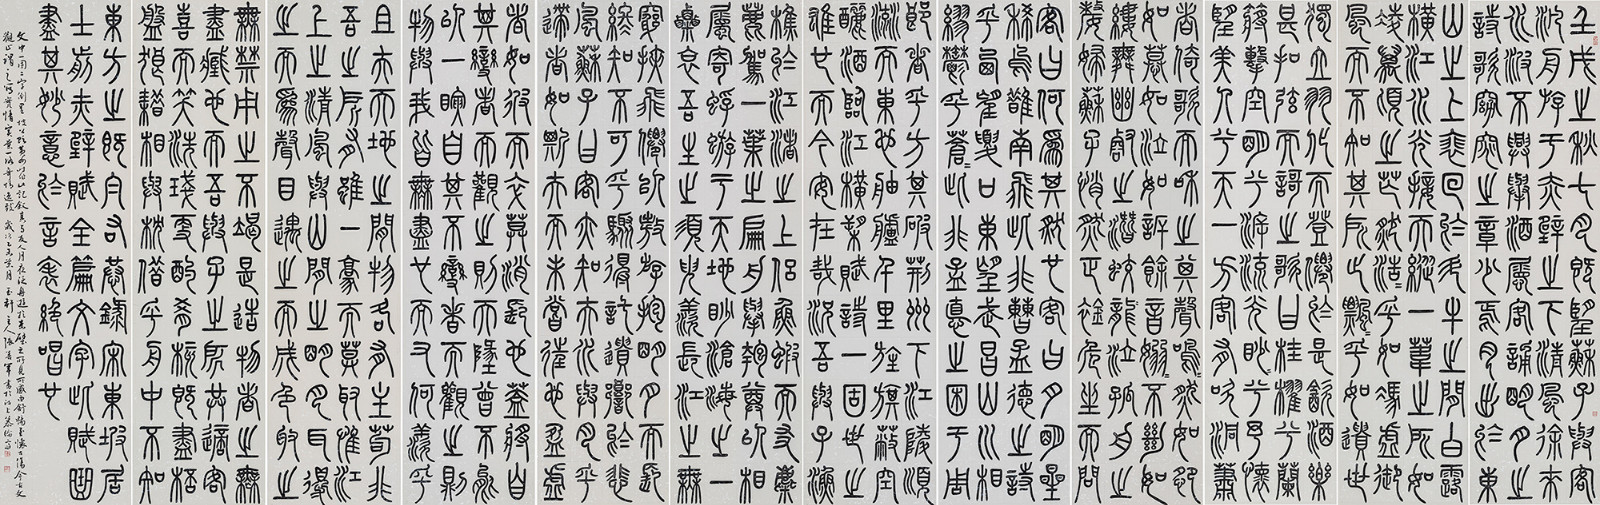 壬戌之秋七月既望蘇子與客
泛舟游于赤壁之下清風徐來
水波不興舉酒屬客誦明月之
詩歌窈窕之章少焉月出於東
山之上徘徊於斗牛之間白露
橫江水光接天縱一葦之所如
凌萬頃之茫然浩浩乎如馮虛御
風而不知其所止飄飄乎如遺世
獨立羽化而登僊於是飲酒樂
甚扣舷而歌之歌曰桂櫂兮蘭
槳擊空明兮泝流光眇眇兮予懷
望美人兮天一方客有吹洞簫
者倚歌而和之其聲嗚嗚然如怨
如慕如泣如訴餘音嫋嫋不絕如
縷舞幽壑之潛蛟泣孤舟之
嫠婦蘇子愀然正襟危坐而問
客曰何為其然也客曰月明星
稀烏鵲南飛此非曹孟德之詩
乎西望夏口東望武昌山川相
繆鬱乎蒼蒼此非孟德之困于周
郎者乎方其破荊州下江陵順
流而東也舳艫千里旌旗蔽空
釃酒臨江橫槊賦詩一固世之
雄也而今安在哉況吾與子漁
樵於江渚之上侶魚蝦而友麋
鹿駕一葉之扁舟舉匏尊以相
屬寄蜉蝣于天地眇滄海之一
粟哀吾生之須臾羨長江之無
窮挾飛僊以遨游抱明月而長
終知不可乎驟得託遺響於悲
風蘇子曰客亦知夫水與月乎
逝者如斯而未嘗往也盈虛
者如彼而卒莫消長也蓋將自
其變者而觀之則天地曾不能
以一瞬自其不變者而觀之則
物與我皆無盡也而又何羨乎
且夫天地之間物各有主苟非
吾之所有雖一毫而莫取惟江
上之清風與山間之明月耳得
之而為聲目遇之而成色取之
無禁用之不竭是造物者之無
盡藏也而吾與子之所共適客
喜而笑洗盞更酌肴核既盡杯
盤狼藉相與枕藉乎舟中不知
東方之既白右恭錄宋東坡居
士前赤壁賦全篇文字此賦
盡其妙意於言表絕唱也